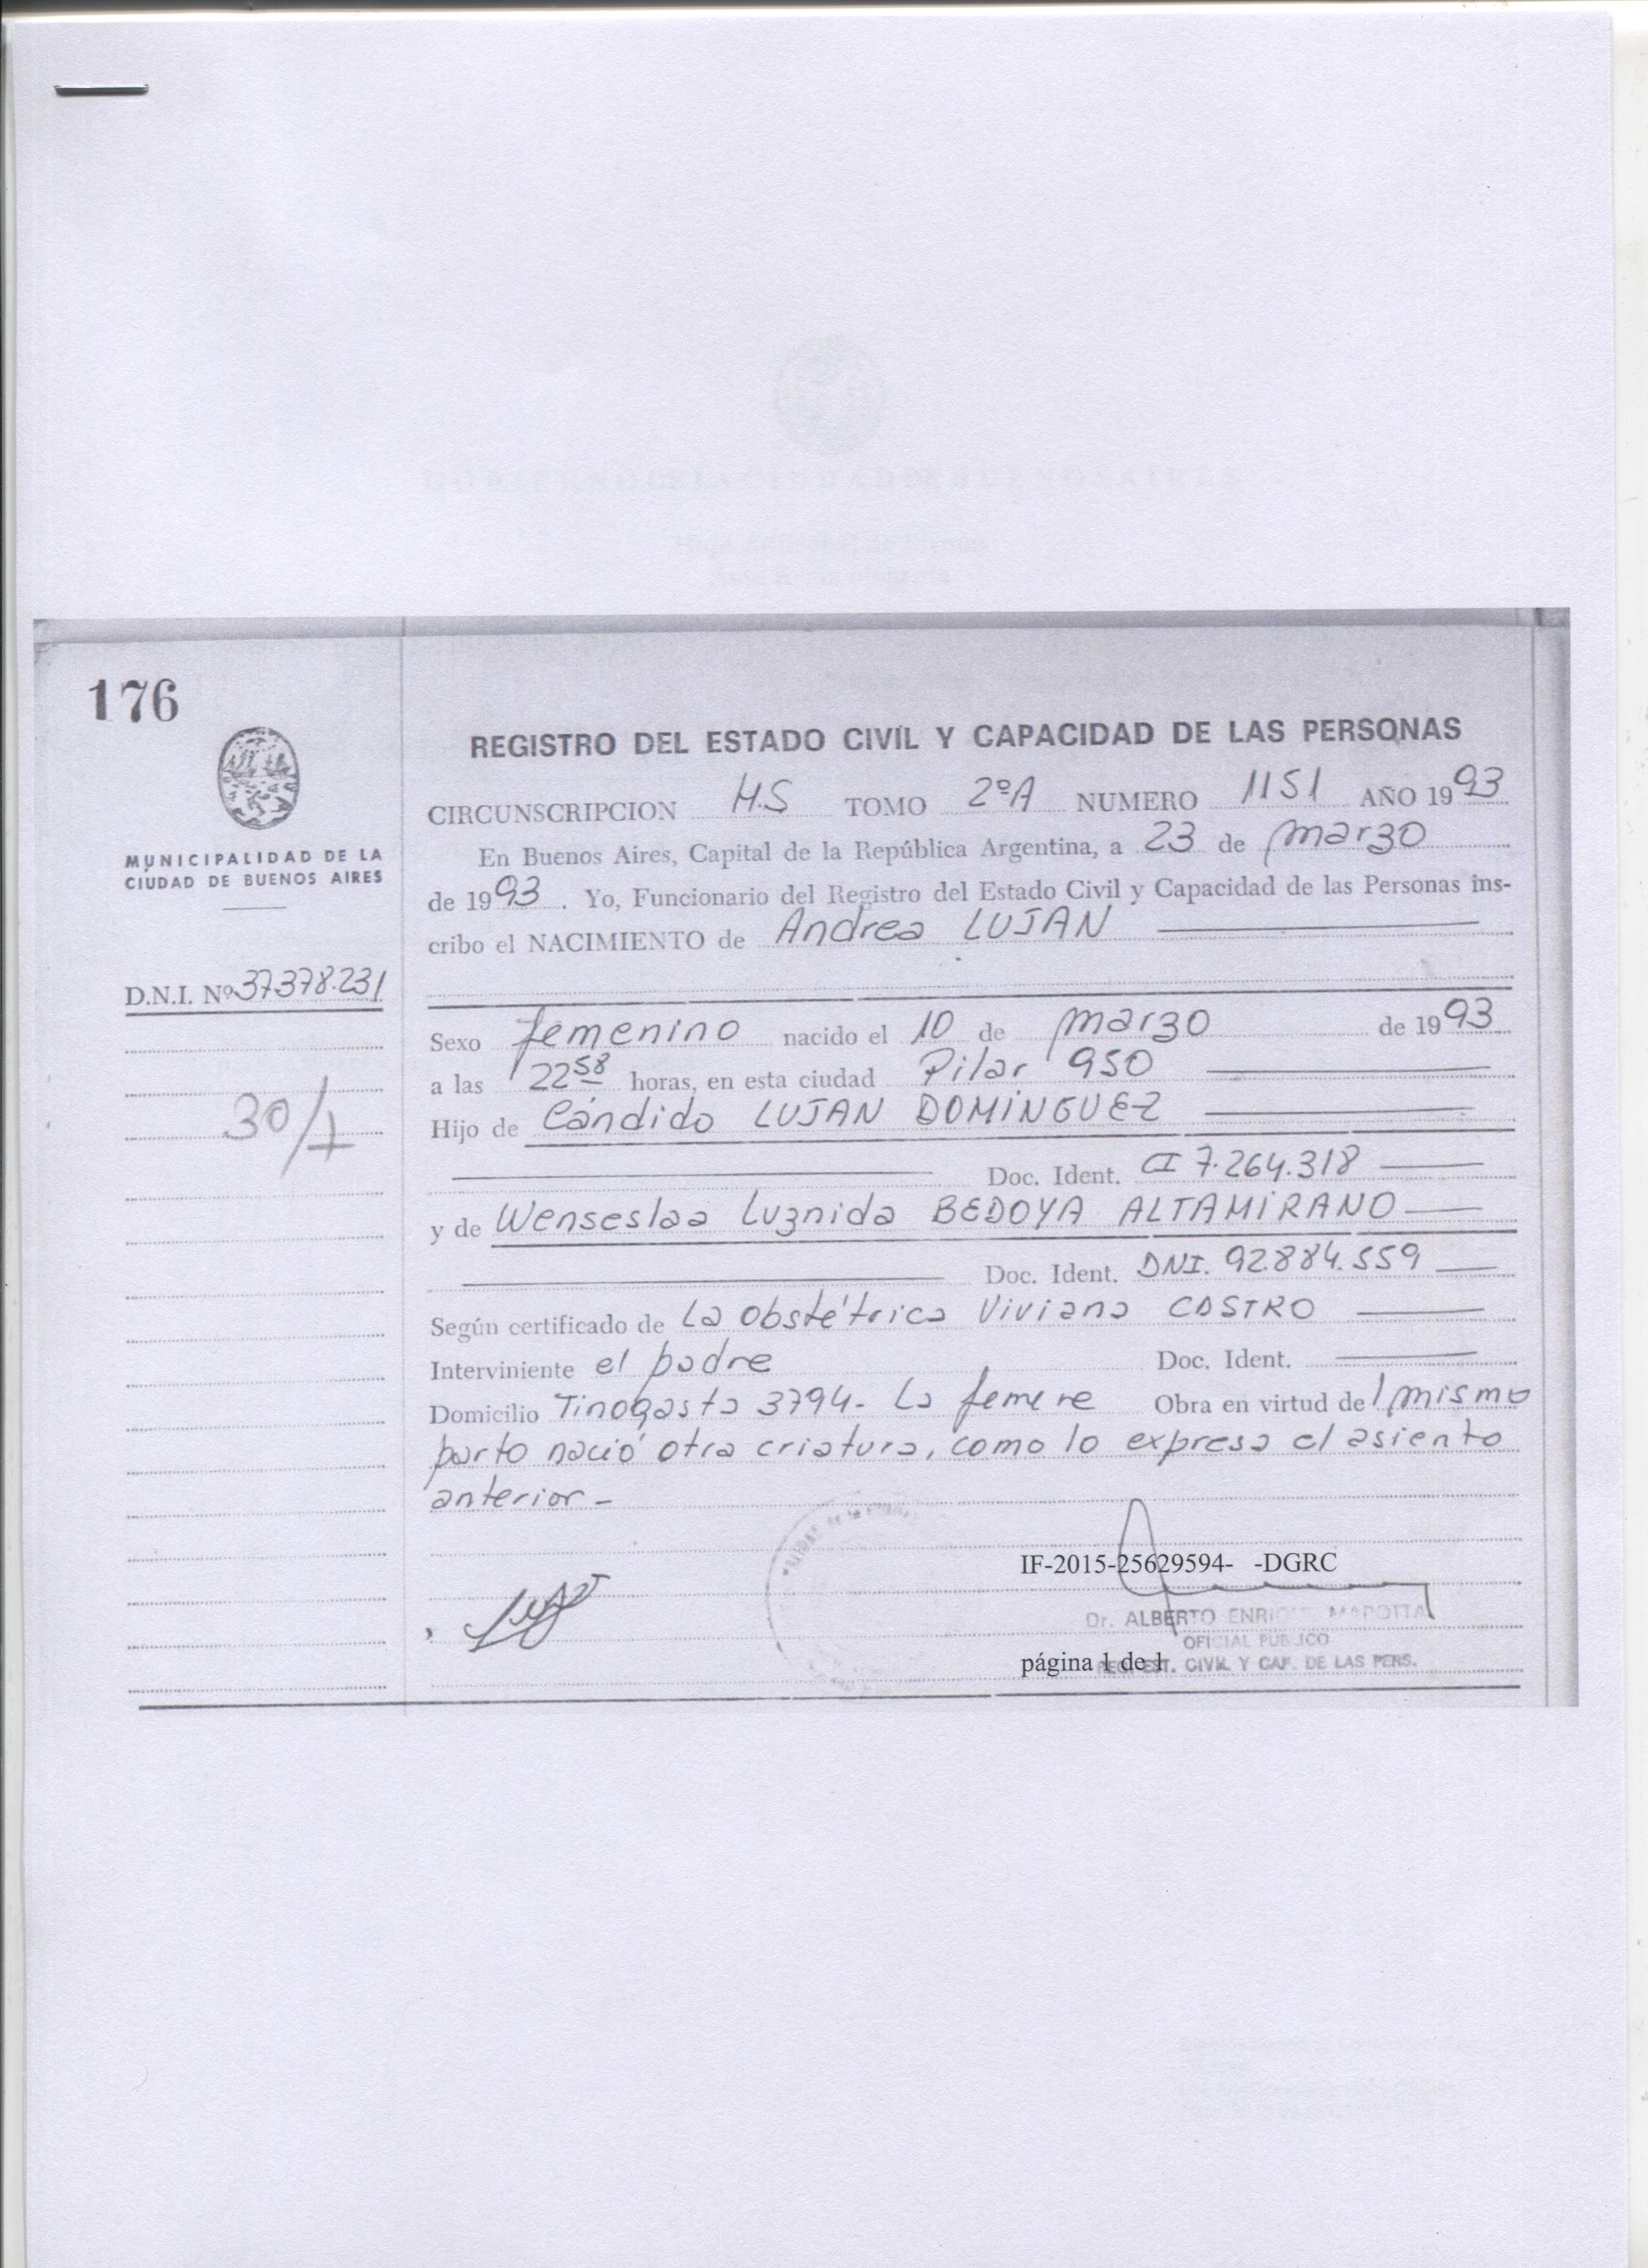 176
MUNICIPALIDAD DE LA
CIUDAD DE BUENOS AIRES
D.N.I. Nº 37378.231
30/1
REGISTRO DEL ESTADO CIVIL Y CAPACIDAD DE LAS PERSONAS
CIRCUNSCRIPCION H.S TOMO 2ºA NUMERO 1151 AÑO 1993
En Buenos Aires, Capital de la República Argentina, a 23 de marzo
de 1993. Yo, Funcionario del Registro del Estado Civil y Capacidad de las Personas ins-
cribo el NACIMIENTO de Andrea LUJAN
Sexo femenino nacido el 10 de marzo de 1993
a las 22 58 horas, en esta ciudad Pilar 950
Hijo de Cándido LUJAN DOMINGUEZ
Doc. Ident. CI 7.264.318
y de Wenseslaa Luznida BEDOYA ALTAMIRANO
Doc. Ident. DNI. 92.884.559
Según certificado de La Obstétrica Viviana CASTRO
Interviniente el padre Doc. Ident.
Domicilio Tinogasta 3794- La Obra en virtud de l mismo
parto nació otra criatura, como lo expresa el asiento
anterior-
IF-2015-25629594- -DGRC
Dr. ALBERTO ENRIQUE MAROTTA
OFICIAL PUBLICO
página 1 de 1
EST. CIVIL Y CAP. DE LAS PERS.